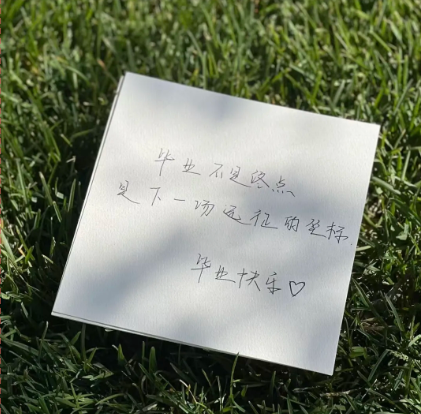 毕业不是终点
是下一场远征的坐标.
毕业快乐♡